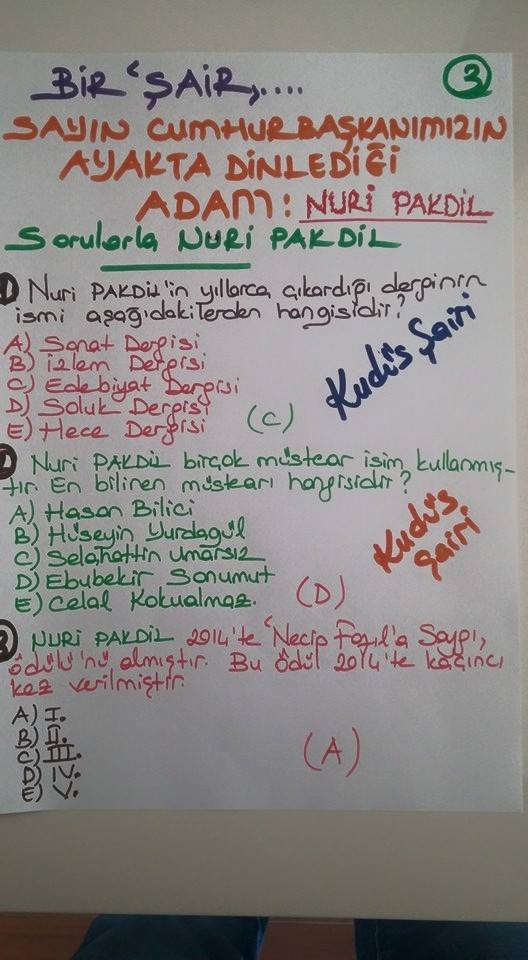 BİR 'ŞAİR,....
3
SAYIN CUMHURBAŞKANIMIZIN
AYAKTA DİNLEDİĞİ
ADAM: NURİ PAKDİL
Sorularla NURİ PAKDİL
1 Nuri PAKDİL'in yıllarca çıkardığı derginin
ismi aşağıdakilerden hangisidir?
A) Sanat Dergisi
B) İzlem Dergisi
C) Edebiyat Dergisi
D) Soluk Dergisi
E) Hece Dergisi
(C)
Kudüs Şairi
Nuri PAKDİL birçok müstear isim kullanmış-
tır. En bilinen müstearı hangisidir?
A) Hasan Bilici
B) Hüseyin Yurdagül
C) Selahattin Umarsız
D) Ebubekir Sonumut
E) Celal Kokualmaz.
(D)
Kudüs
Şairi
3 NURİ PAKDİL 2014'te 'Necip Fazıl'a Saygı,
ödülü'nü almıştır. Bu ödül 2014'te kaçıncı
kez verilmiştir.
A) I.
B) II.
C) III.
D) IV.
E) V.
(A)